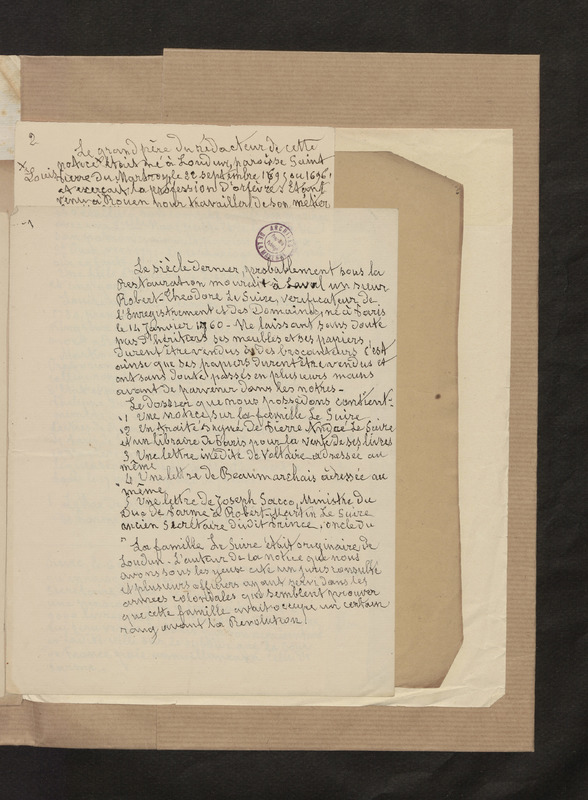 2
Le grand père du rédacteur de cette
notice était né à Loudun, paroisse Saint
x Louis
Pierre du Martroy le 22 septembre 1695 ou 1696,
et exerçait la profession d'orfèvre. Etant
venu à Rouen pour travailler de son métier
-1
Le siècle dernier, probablement sous la
Restauration mourait à Laval un sieur
Robert-Théodore Le Suire, vérificateur de
l'Enregistrement et des Domaines, né à Paris
le 14 Janvier 1760 - Ne laissant sans doute
pas d'héritiers ses meubles et ses papiers
durent être vendus à des brocanteurs c'est
ainsi que ses papiers durent être vendus et
ont sans doute passés en plusieurs mains
avant de parvenir dans les notres -
Le dossier que nous possédons contient -
1 Une notice sur la famille Le Suire
2 Un traité signé de Pierre André Le Suire
et un libraire de Paris pour la vente de ses livres
3 Une lettre inédite de Voltaire adressée au
même
4 Une lettre de Beaumarchais adressée au
même
Une lettre de Joseph Sacco, Ministre du
Duc de Parme à Robert-Martin Le Suire
ancien Secrétaire du dit Prince, oncle du
La famille Le Suire était originaire de
Loudun - L'auteur de la notice que nous
avons sous les yeux cite un jurisconsulte
et plusieurs officiers ayant servi dans les
armées coloniales qui semblent prouver
que cette famille avait occupé un certain
rang avant la Révolution